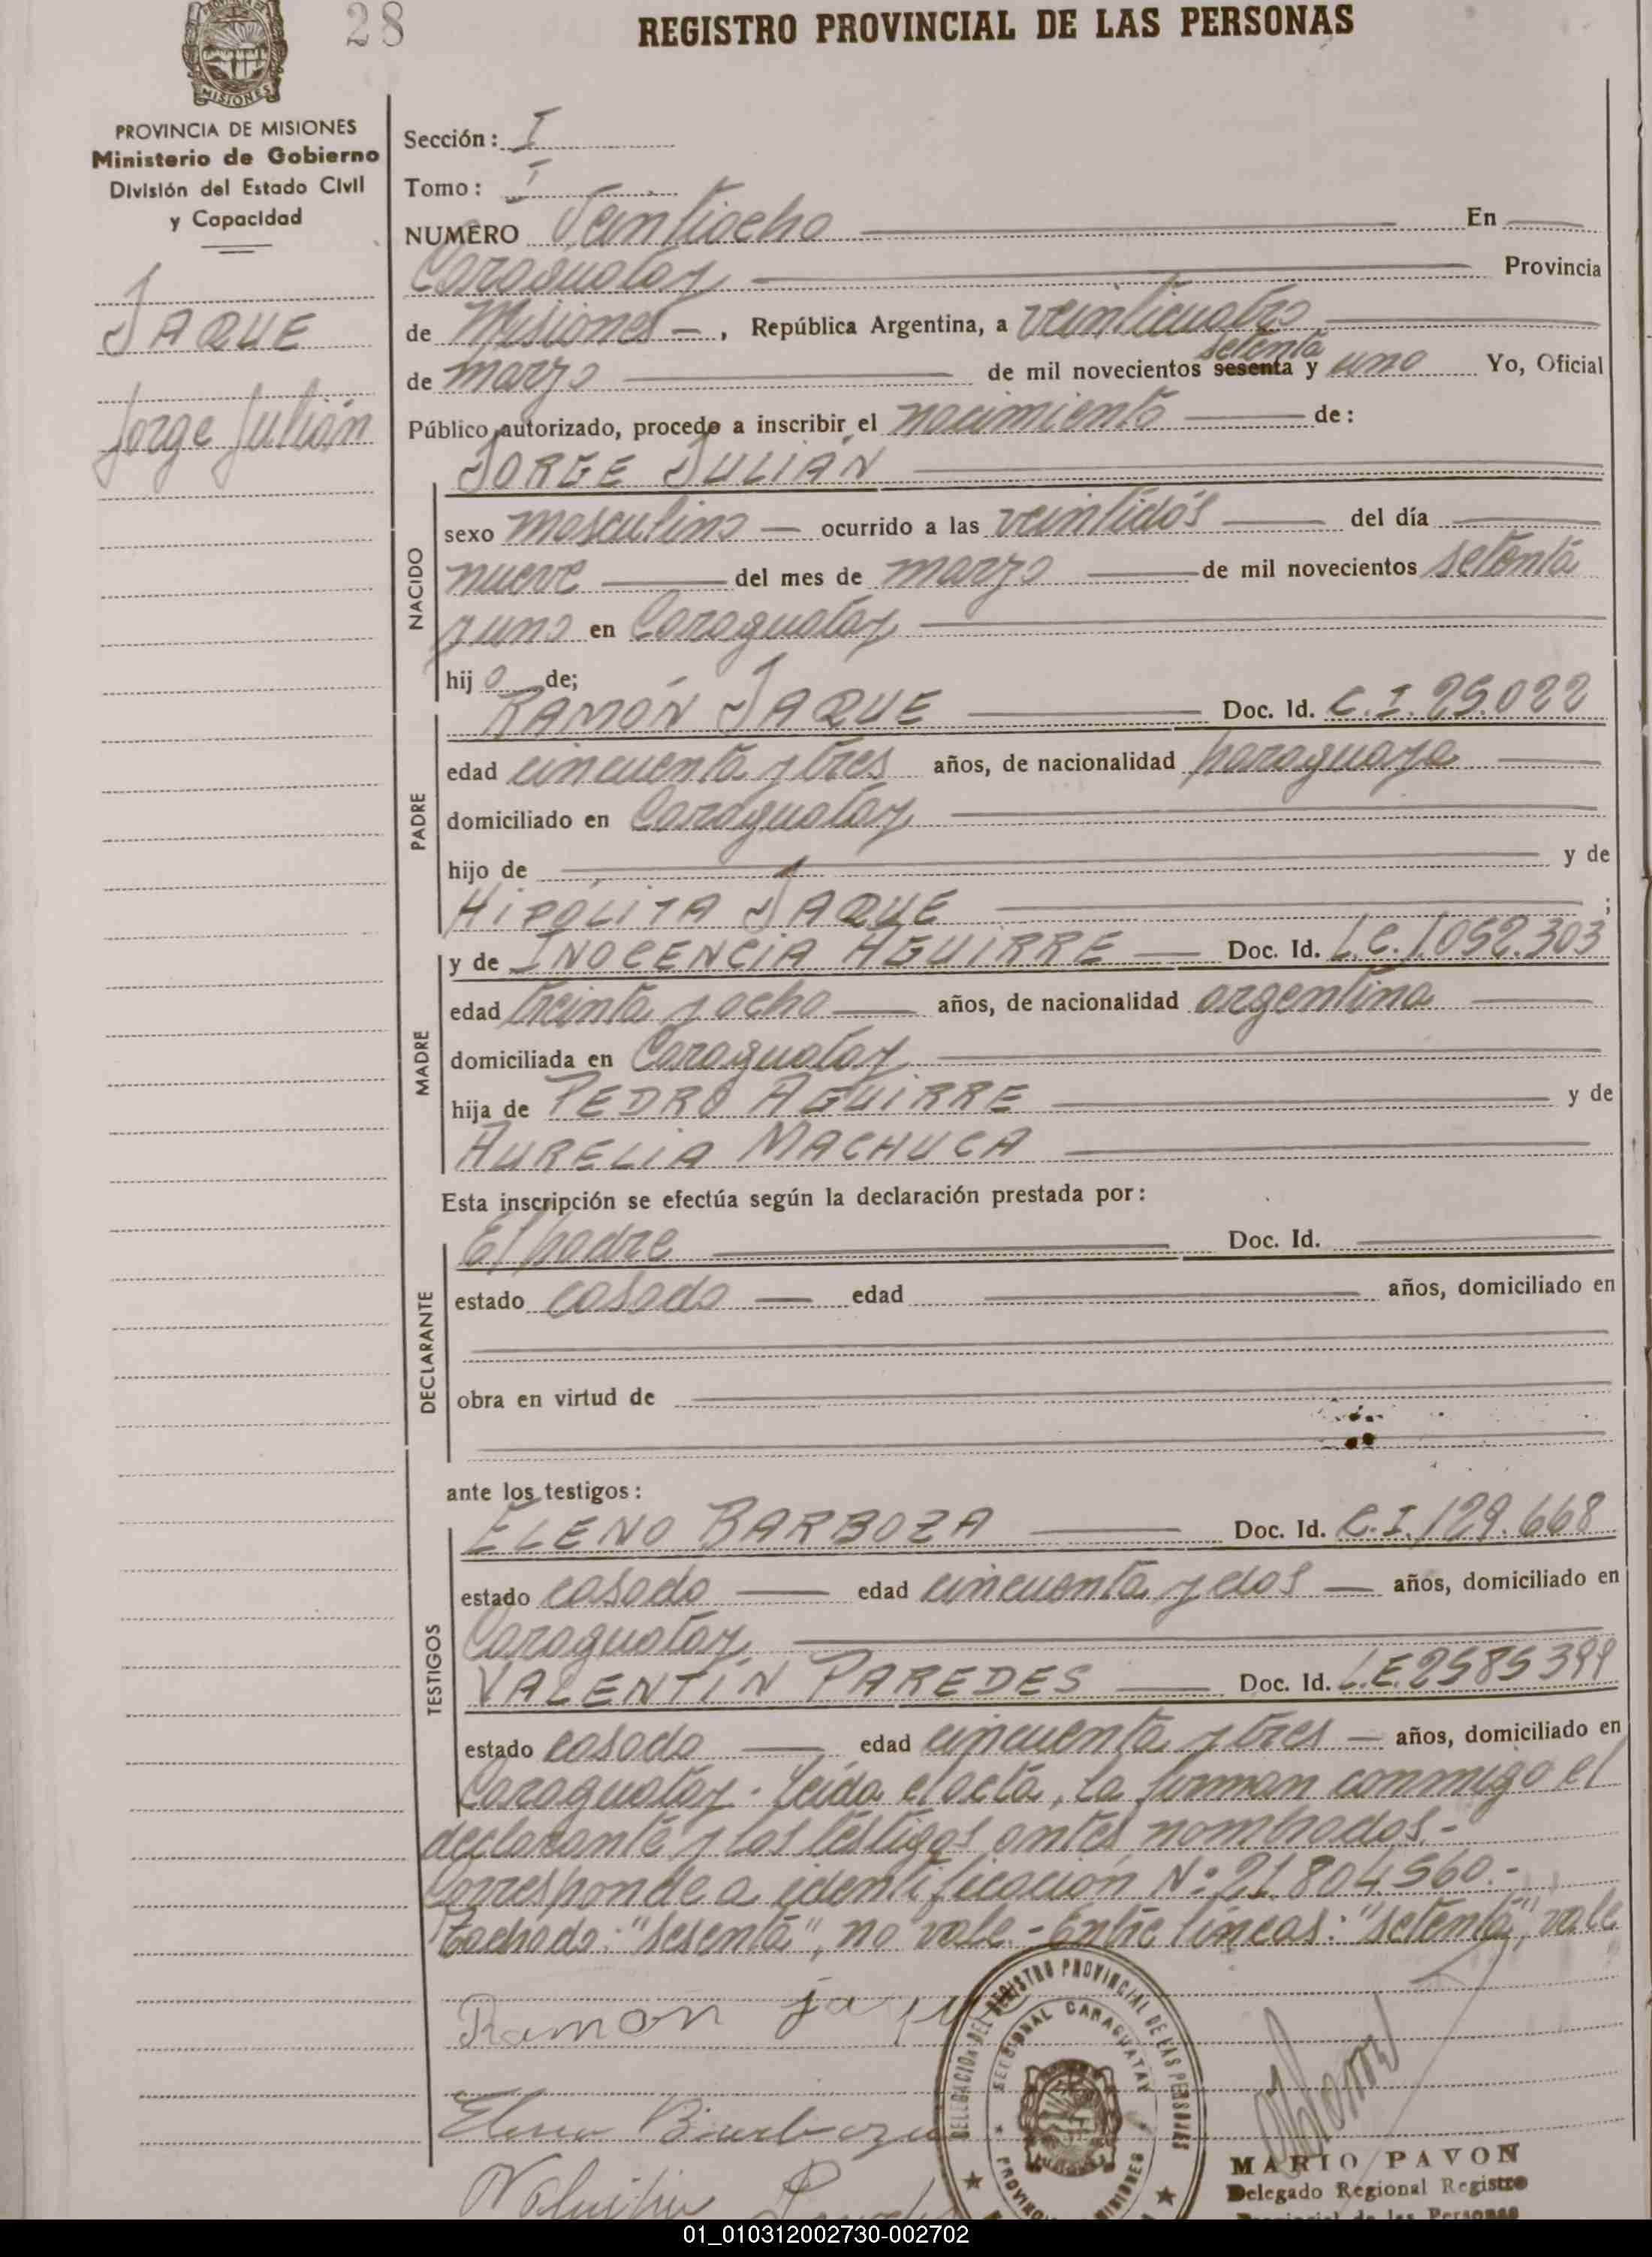 28
REGISTRO PROVINCIAL DE LAS PERSONAS
MISIONES
PROVINCIA DE MISIONES
Ministerio de Gobierno
División del Estado Civil
y Capacidad
JAQUE
Jorge Julián
Sección: I
Tomo: I
NUMERO Veintiocho En
Caraguatay Provincia
de Misiones, República Argentina, a veinticuatro
setenta
de marzo de mil novecientos sesenta y uno Yo, Oficial
Público autorizado, procedo a inscribir el nacimiento de:
JORGE JULIÁN
NACIDO
sexo masculino ocurrido a las veintidós del día
nueve del mes de marzo de mil novecientos setenta
y uno en Caraguatay
hijo de;
PADRE
RAMÓN JAQUE Doc. Id. C.I. 25.022
edad cincuenta y tres años, de nacionalidad paraguaya
domiciliado en Caraguatay
hijo de y de
HIPÓLITA JAQUE ;
MADRE
y de INOCENCIA AGUIRRE Doc. Id. L.C. 1.052.303
edad treinta y ocho años, de nacionalidad argentina
domiciliada en Caraguatay
hija de PEDRO AGUIRRE y de
AURELIA MACHUCA
Esta inscripción se efectúa según la declaración prestada por:
DECLARANTE
El padre Doc. Id.
estado casado edad años, domiciliado en
obra en virtud de
ante los testigos:
TESTIGOS
ELENO BARBOZA Doc. Id. C.I. 129.668
estado casado edad cincuenta y dos años, domiciliado en
Caraguatay
VALENTÍN PAREDES Doc. Id. L.E. 2585399
estado casado edad cincuenta y tres años, domiciliado en
Caraguatay - Leída el acta, la firman conmigo el
declarante y los testigos antes nombrados.-
Corresponde a identificación Nº 21.804.560.-
Tachado: "sesenta", no vale.- Entre líneas: "setenta", vale
Ramon jaque
Eleno Barboza
DELEGACION DEL REGISTRO PROVINCIAL DE LAS PERSONAS
SECCIONAL CARAGUATAY
MARIO PAVON
Delegado Regional Registro
Provincial de las Personas
01_010312002730-002702